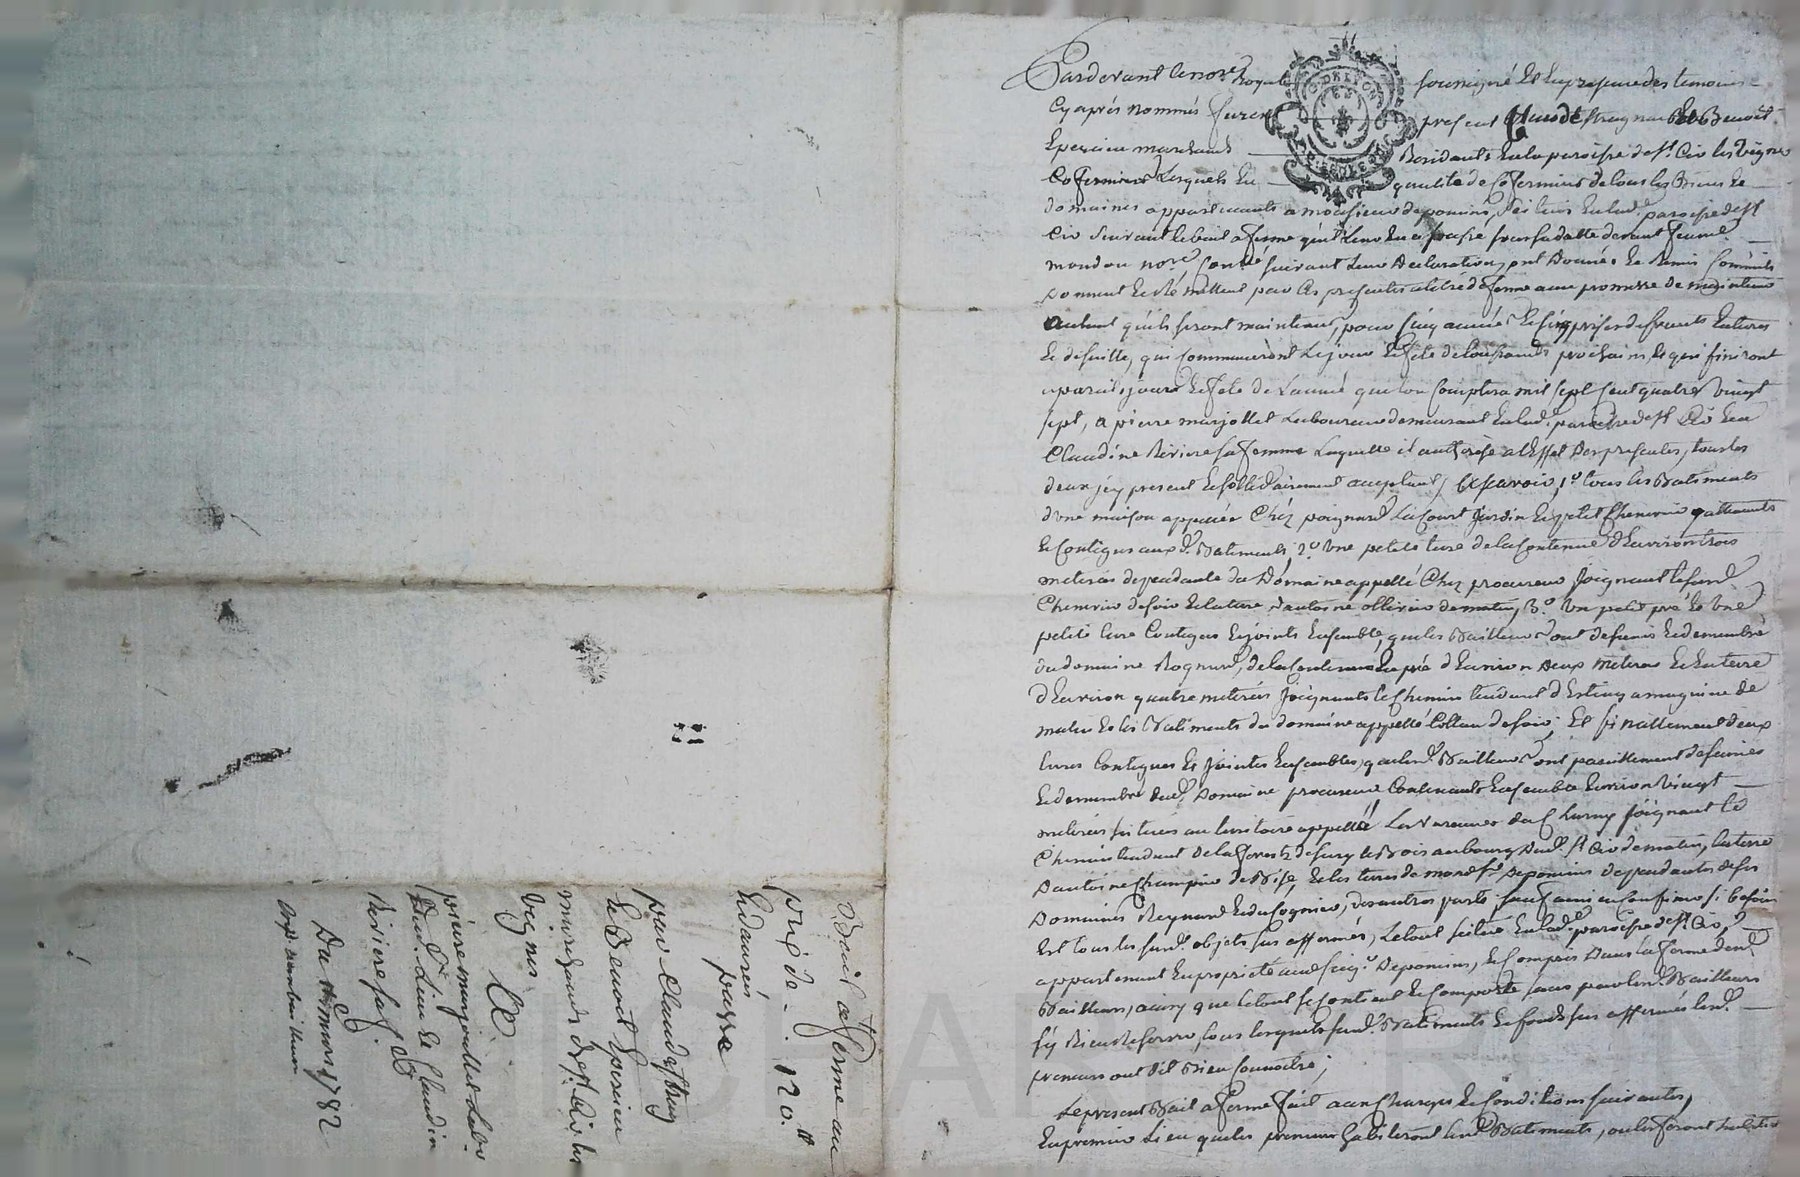 Pardevant le no.re Royal soussigné Et En presence des temoins
Cy aprés nommés furent present Claude & Benoit
Epercieu marchands Residants En la paroisse de St. Cir les Vignes
Cofermiers Lesquels En qualité de Cofermiers de tous les Biens Et
domaines appartenants a monsieur depomins, scitués En lad. paroisse de St
Cir suivant le bail a ferme qui leur En a passé devant
no.re suivant Leur Declaration, ont Donné Et Remis Comme ils
Donnent Et Remettent par Ces presentes a titre de ferme avec promesse de maintenir
autant qu'ils seront maintenus, pour Cinq années Et Cinq prises de fruits Entieres
Et de suitte, qui Commenceront Le jour Et fete de Toussaints prochains, Et qui finiront
a pareils jour Et fete de L'année que l'on Comptera mil sept Cent quatre vingt
sept, a pierre marjollet Laboureur demeurant En lad. paroisse de St Cir Et a
Claudine Riviere sa femme Laquelle il authorise a l'Effet Des presentes, tous les
deux icy present Et sollidairement acceptant, Asavoir, 1.o tous les Batiments
d'une maison appellée Chez poignard La Court Jardin Et petit Chenevier attenants
Et Contigus aux d. Batiments, 2.o Une petite terre de la Contenue d'Environ trois
meterées dependante du Domaine appellé Chez procureur Joignant le susd.
Chenevier de soir Et la terre d'antoine ollivier de matin, 3.o Un petit pré Et Une
petite terre Contigus Et joints Ensemble, que les Bailleurs ont Et demembré
du domaine Rognard, de la Contenue Le pré d'Environ deux meterées Et La terre
d'Environ quatre meterées Joignants le Chemin tendant d' a de
matin Et les Batiments du domaine appellé de soir; Et finallement deux
terres Contigues Et Jointes Ensembles, que les d. Bailleurs ont pareillement
Et demembré dud. Domaine procureur Contenants Ensemble Environ vingt
meterées scituées au territoire appellé Les Varennes Joignant le
Chemin tendant de la forest de sury le Bois au bourg dud. St Cir de matin, la terre
d'antoine de Bise, Et les terres de mond. sr Depomins dependantes de ses
Domaines Reynard Et du, des autres parts sauf Confins si besoin
Est tous les susd. objets sus affermés, Le tout scitué En lad. paroisse de St Cir,
appartenant En proprieté aud. sieur Depomins, Et Compris Dans la ferme desd.
Bailleurs, ainsy que le tout se Contient Et Comporte sans par les d. Bailleurs
s'y Rien Reserver, tous lesquels susd. Batiments Et fonds sus affermés les d.
preneurs ont dit Bien Connoitre;
Le present Bail a ferme fait aux Charges Et Conditions suivantes,
En premier Lieu que les preneurs habiteront les d. Batiments, ou les feront habiter
Bail a ferme au
prix de - 120.tt
Et danrées
passé
par Claude
Et Benoit Epercieu
marchands de St. Cir les
vignes
a
pierre marjollet Labo-
dud. Lieu Et Claudine
Riviere sa f.e
Du mars 1782